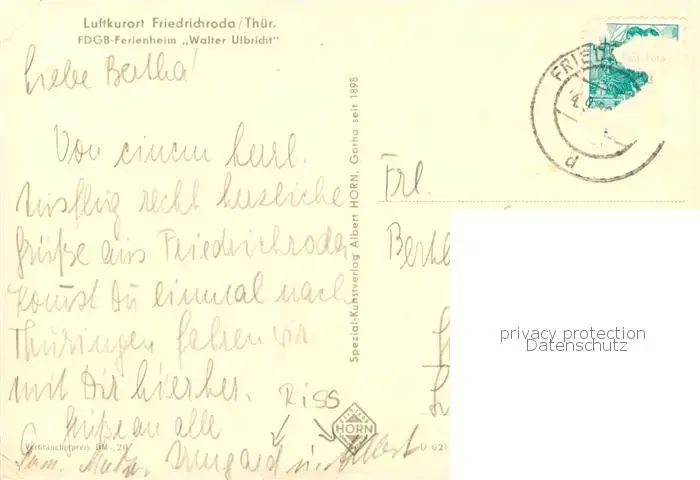 Luftkurort Friedrichroda/Thür.
FDGB-Ferienheim „Walter Ulbricht"
Liebe Bertha!
Von einem herrl.
Ausflug recht herzliche
Grüße aus Friedrichroda
Kommst Du einmal nach
Thüringen fahren wir
mit Dir hierher.
Grüße an alle
Mutter Irmgard u. Albert
RISS
Verbraucherpreis DM -,20
Spezial-Kunstverlag Albert HORN, Gotha seit 1898
HORN
D 021
FRIED
d
Frl.
Berth
privacy protection
Datenschutz